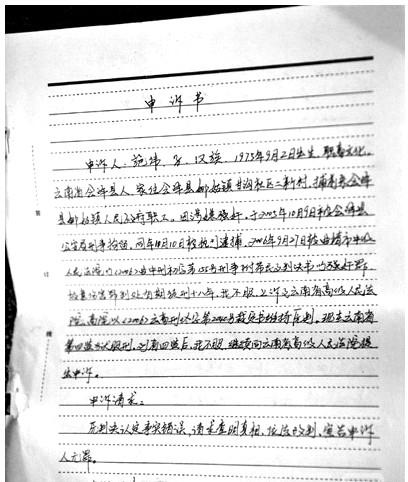 申诉书
申诉人：施伟，男，汉族，1975年9月2日出生，职高文化，
云南省会泽县人，家住会泽县 社区二新村，捕前系会泽
县 镇人民 职工。因涉嫌强奸，于2005年10月9日被会泽县
公安局刑事拘留，同年10月10日被执行逮捕，2006年9月27日被曲靖市中级
人民法院以(2006)曲中刑初字第155号刑事附带民事判决书以强奸罪、
故意伤害罪判处有期徒刑十八年，我不服，上诉至云南省高级人民法
院，高院以(2006)云高刑终字第 号裁定书维持原判。现在云南省
第四监狱服刑，到省四监后，我不服，继续向云南省高级人民法院提
出申诉。
申诉请求：
原判决认定事实错误，请求查明真相，依法改判，宣告申诉
人无罪。
装
订
线